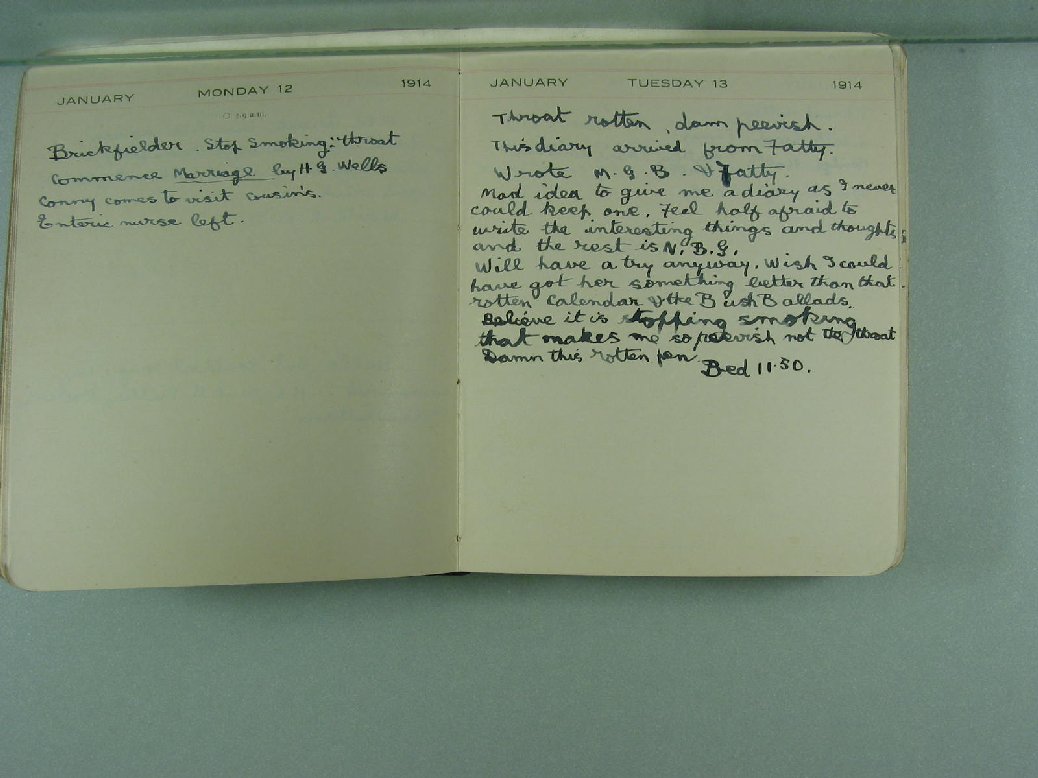 JANUARY MONDAY 12 1914
Brickfielder. Stop Smoking: throat
Commence Marriage by H. G. Wells
Conny comes to visit cousins.
Enteric nurse left.
JANUARY TUESDAY 13 1914
Throat rotten, dam peevish.
This diary arrived from Fatty.
Wrote M. G. B. & Fatty.
Mad idea to give me a diary as I never
could keep one. Feel half afraid to
write the interesting things and thoughts
and the rest is N. B. G.
Will have a try anyway. Wish I could
have got her something better than that
rotten Calendar & the Bush Ballads.
Believe it is stopping smoking
that makes me so peevish not the throat
Damn this rotten pen.
Bed 11.50.